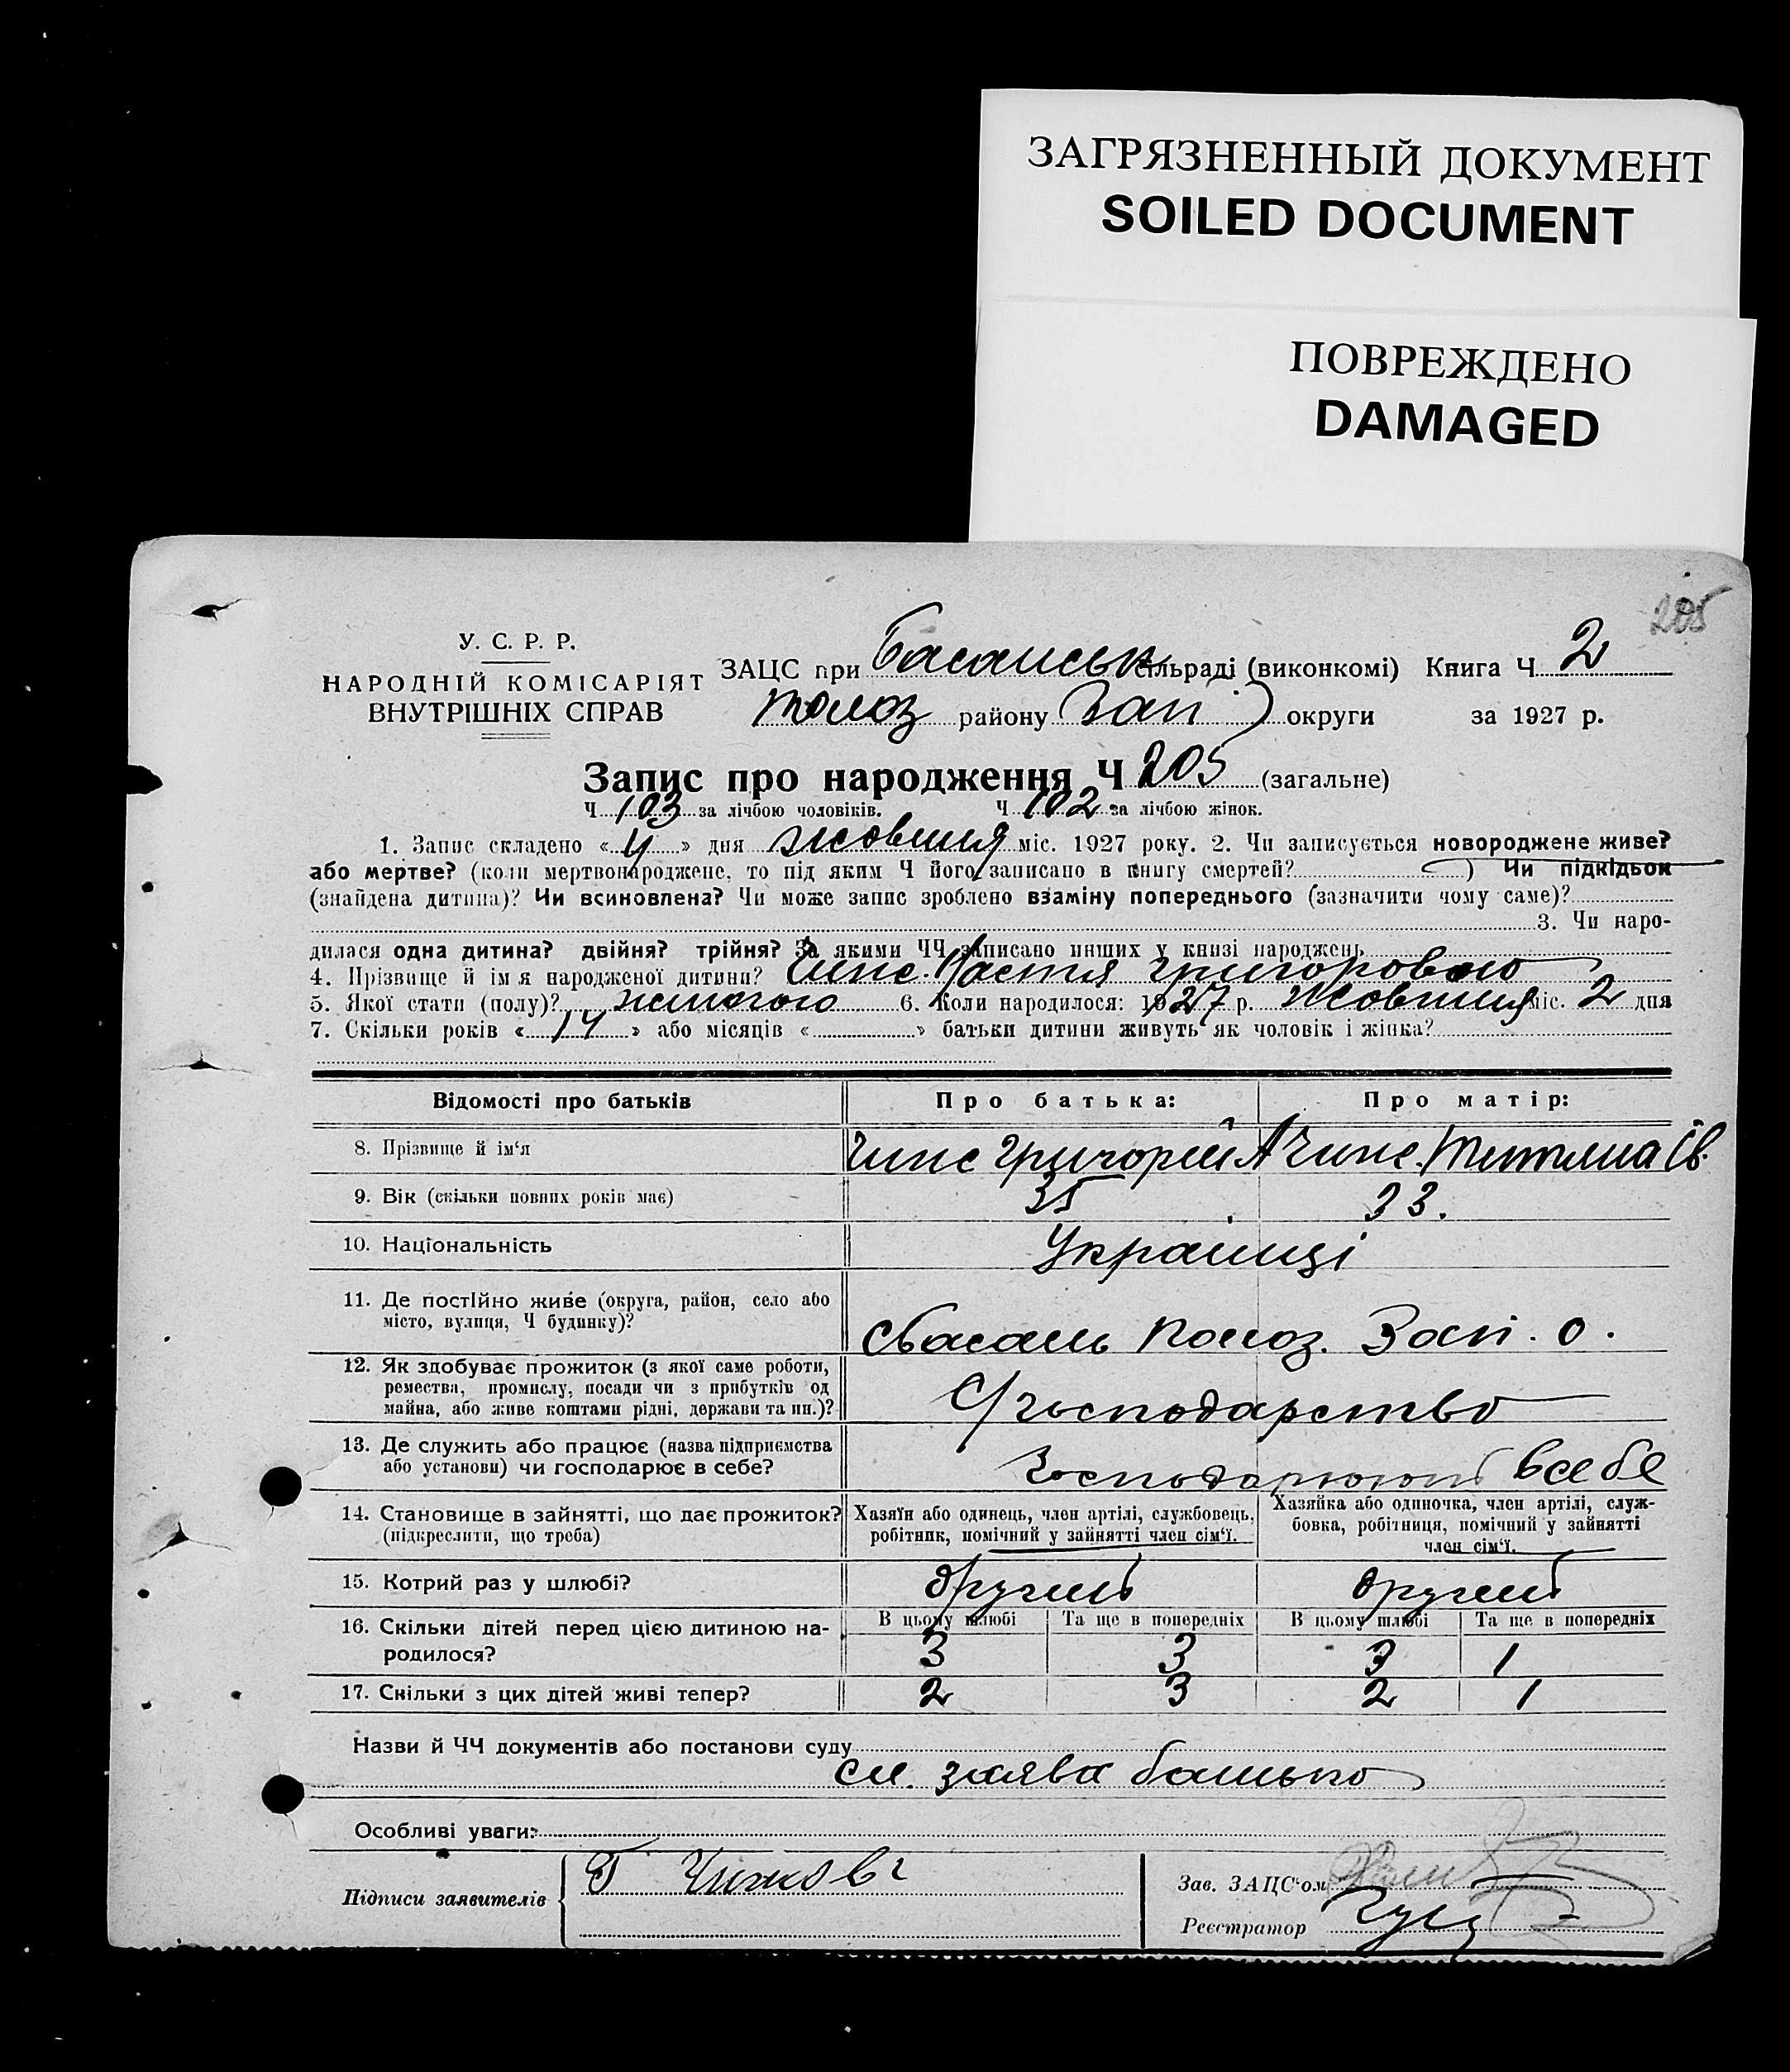 ЗАГРЯЗНЕННЫЙ ДОКУМЕНТ
SOILED DOCUMENT
ПОВРЕЖДЕНО
DAMAGED
205
У. С. Р. Р.
НАРОДНІЙ КОМІСАРІЯТ
ВНУТРІШНІХ СПРАВ
ЗАЦС при Басанськ сільраді (виконкомі) Книга Ч 2
району Зап округи за 1927 р.
Запис про народження Ч 205 (загальне)
Ч 103 за лічбою чоловіків. Ч 102 за лічбою жінок.
1. Запис складено « 4 » дня жовтня міс. 1927 року. 2. Чи записується новороджене живе?
або мертве? (коли мертвонароджене, то під яким Ч його записано в книгу смертей? ) Чи підкідьок
(знайдена дитина)? Чи всиновлена? Чи може запис зроблено взаміну попереднього (зазначити чому саме)?
3. Чи наро-
дилася одна дитина? двійня? трійня? За якими ЧЧ записано инших у книзі народжень
4. Прізвище й ім'я народженої дитини? Настя Григоровою
5. Якої стати (полу)? жиночого 6. Коли народилося: 1927 р. Жовтня міс. 2 дня
7. Скільки років « 14 » або місяців « » батьки дитини живуть як чоловік і жінка?
Відомості про батьків
Про батька:
Про матір:
8. Прізвище й ім'я
Григорій А
Титяна Єв.
9. Вік (скільки повних років має)
35
33.
10. Національність
Українці
11. Де постійно живе (округа, район, село або
місто, вулиця, Ч будинку)?
с Басань Полоз. Зап. о.
12. Як здобуває прожиток (з якої саме роботи,
ремества, промислу, посади чи з прибутків од
майна, або живе коштами рідні, держави та ин.)?
С/господарство
13. Де служить або працює (назва підприємства
або установи) чи господарює в себе?
Господарюють в себе
14. Становище в зайнятті, що дає прожиток?
(підкреслити, що треба)
Хазяїн або одинець, член артілі, службовець,
робітник, помічний у зайнятті член сім'ї.
Хазяйка або одиночка, член артілі, служ-
бовка, робітниця, помічний у зайнятті
член сім'ї.
15. Котрий раз у шлюбі?
другий
другий
16. Скільки дітей перед цією дитиною на-
родилося?
В цьому шлюбі
Та ще в попередніх
В цьому шлюбі
Та ще в попередніх
3
3
3
1
17. Скільки з цих дітей живі тепер?
2
3
2
1
Назви й ЧЧ документів або постанови суду
сл. заява батько
Особливі уваги:
Підписи заявителів
Г
Зав. ЗАЦС'ом
Реєстратор